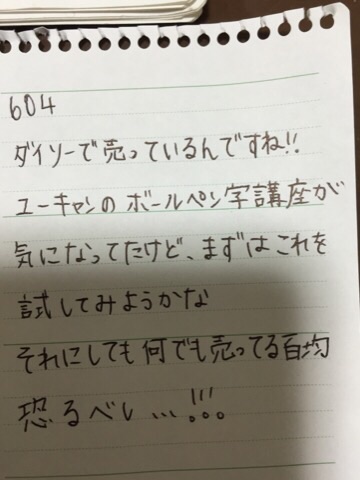 604
ダイソーで売っているんですね!!
ユーキャンのボールペン字講座が
気になってたけど、まずはこれを
試してみようかな
それにしても何でも売ってる百均
恐るべし…!!!